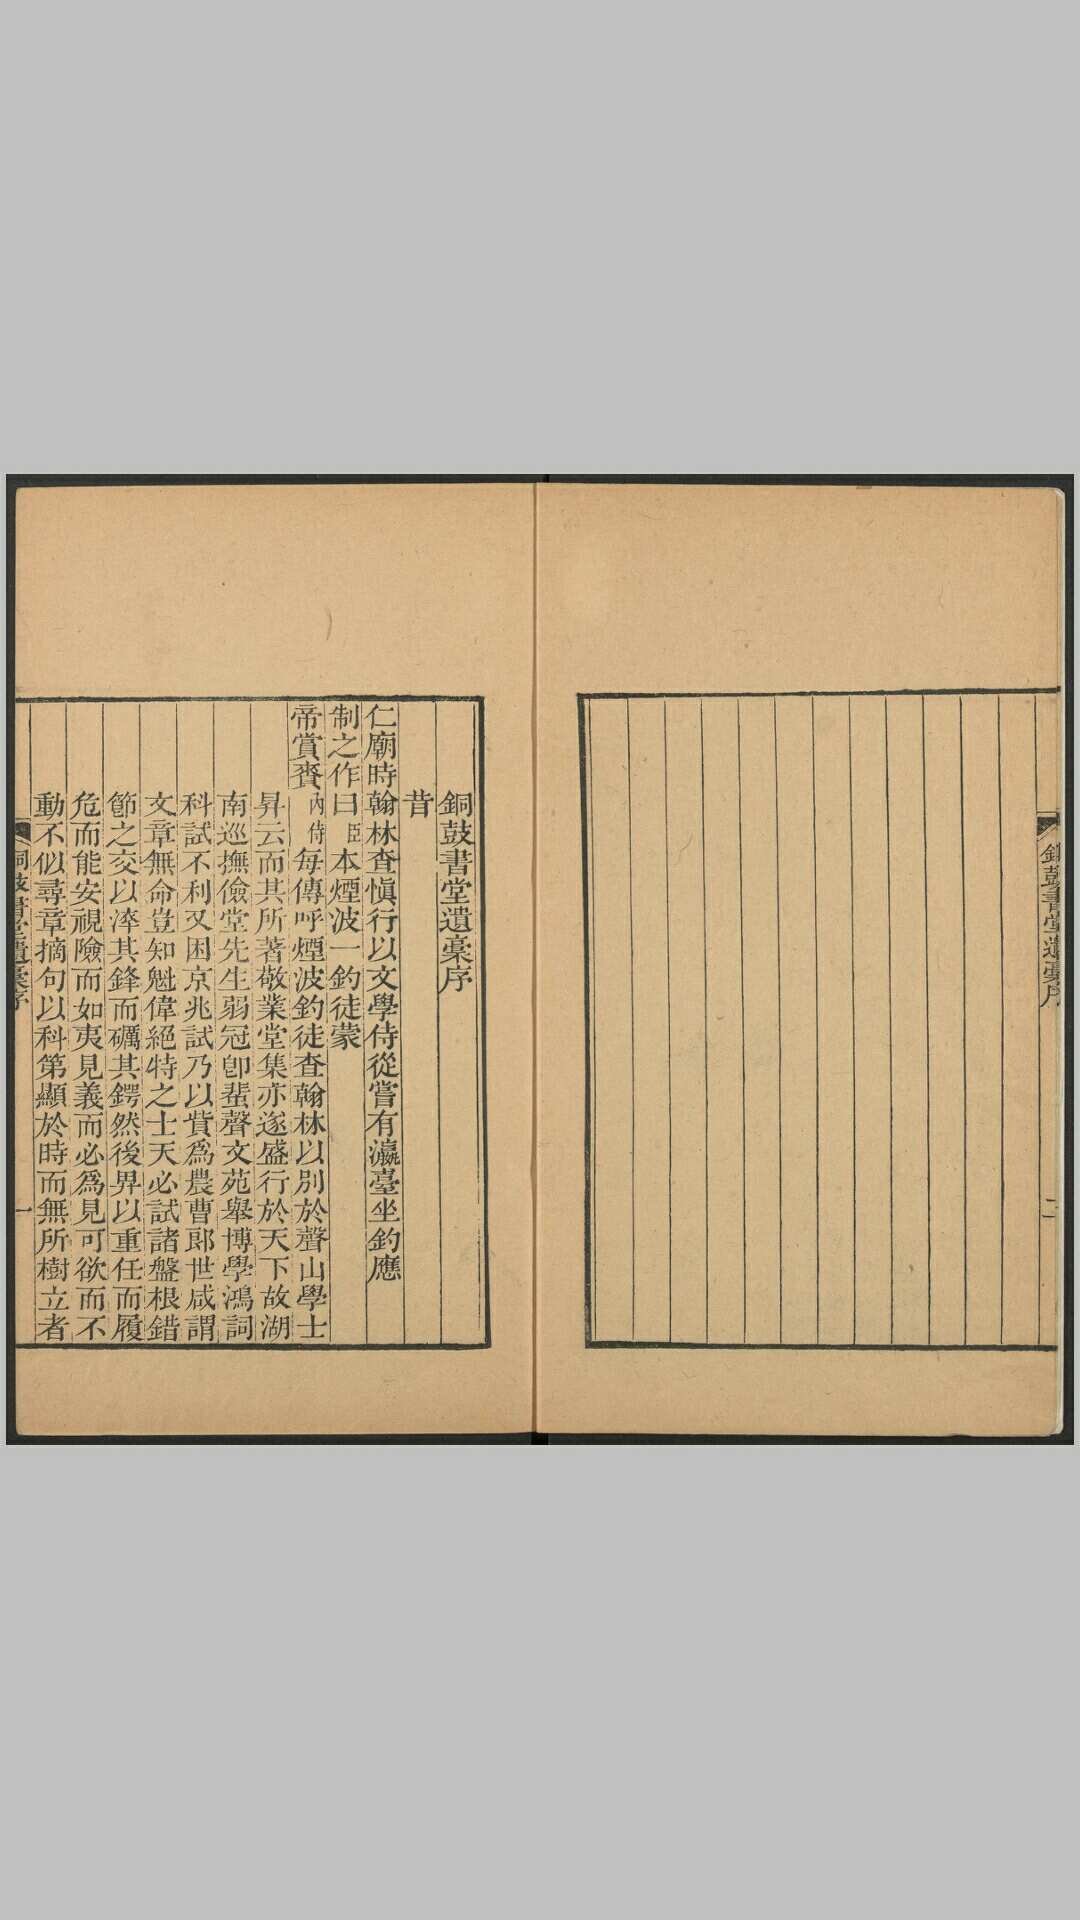 銅鼓書堂遺稾序
二
銅鼓書堂遺稾序
昔
仁廟時翰林查愼行以文學侍從嘗有瀛臺坐釣應
制之作曰臣本煙波一釣徒蒙
帝賞賚內侍每傳呼煙波釣徒查翰林以別於聲山學士
昇云而其所著敬業堂集亦遂盛行於天下故湖
南巡撫儉堂先生弱冠卽蜚聲文苑舉博學鴻詞
科試不利又困京兆試乃以貲爲農曹郎世咸謂
文章無命豈知魁偉絕特之士天必試諸盤根錯
節之交以淬其鋒而礪其鍔然後畀以重任而履
危而能安視險而如夷見義而必爲見可欲而不
動不似尋章摘句以科第顯於時而無所樹立者
銅鼓書堂遺稾序
一